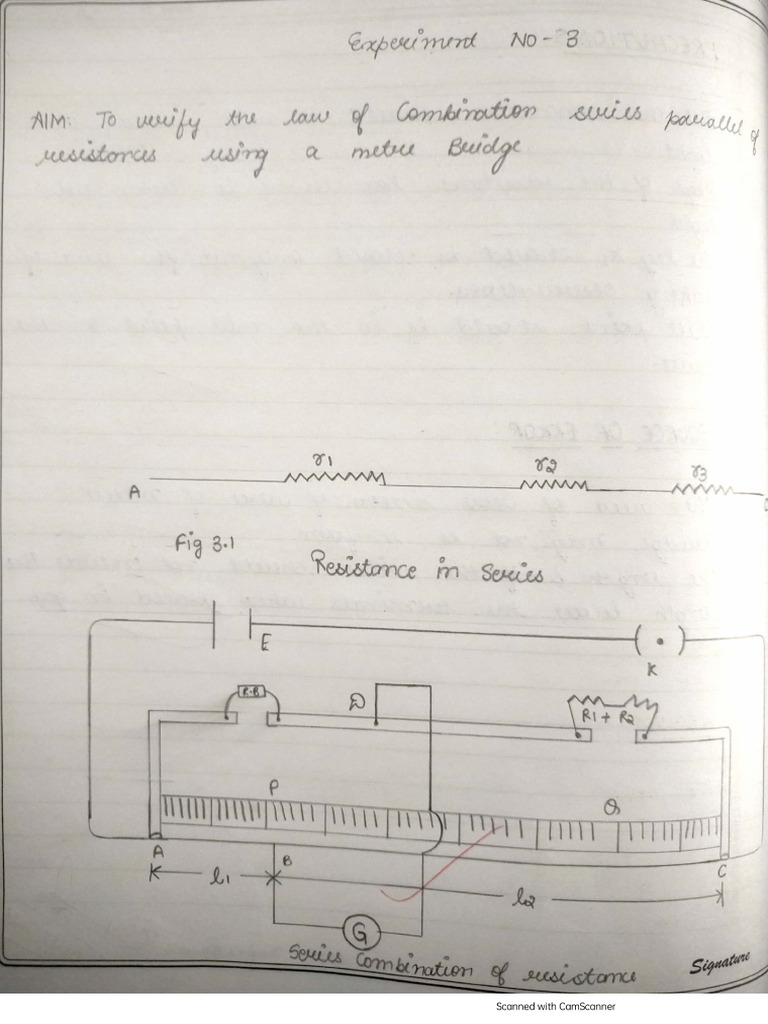 Experiment NO - 3
AIM: To verify the law of Combination series parallel of
resistances using a metre Bridge
r1
r2
r3
A
Fig 3.1
Resistance in Series
E
K
R·B
D
R1 + R2
P
Q
A
B
C
l1
l2
G
Series Combination of resistance
Signature
Scanned with CamScanner